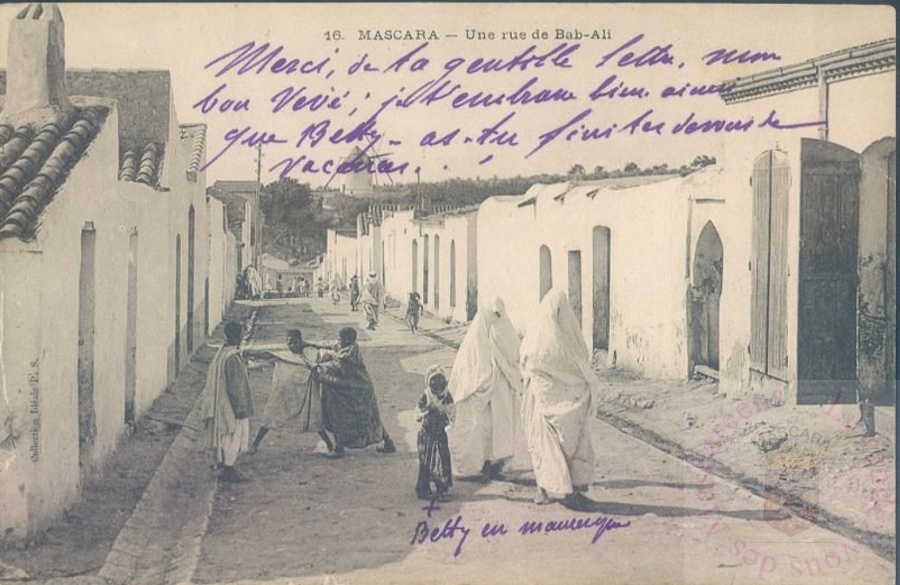 16. MASCARA — Une rue de Bab-Ali
Merci, de ta gentille lettre, mon
bon Vévé ; je t'embrasse bien ainsi
que Betty - as-tu fini tes devoirs de
vacances. . !
Collection Idéale P. S.
+
Betty en mauresque